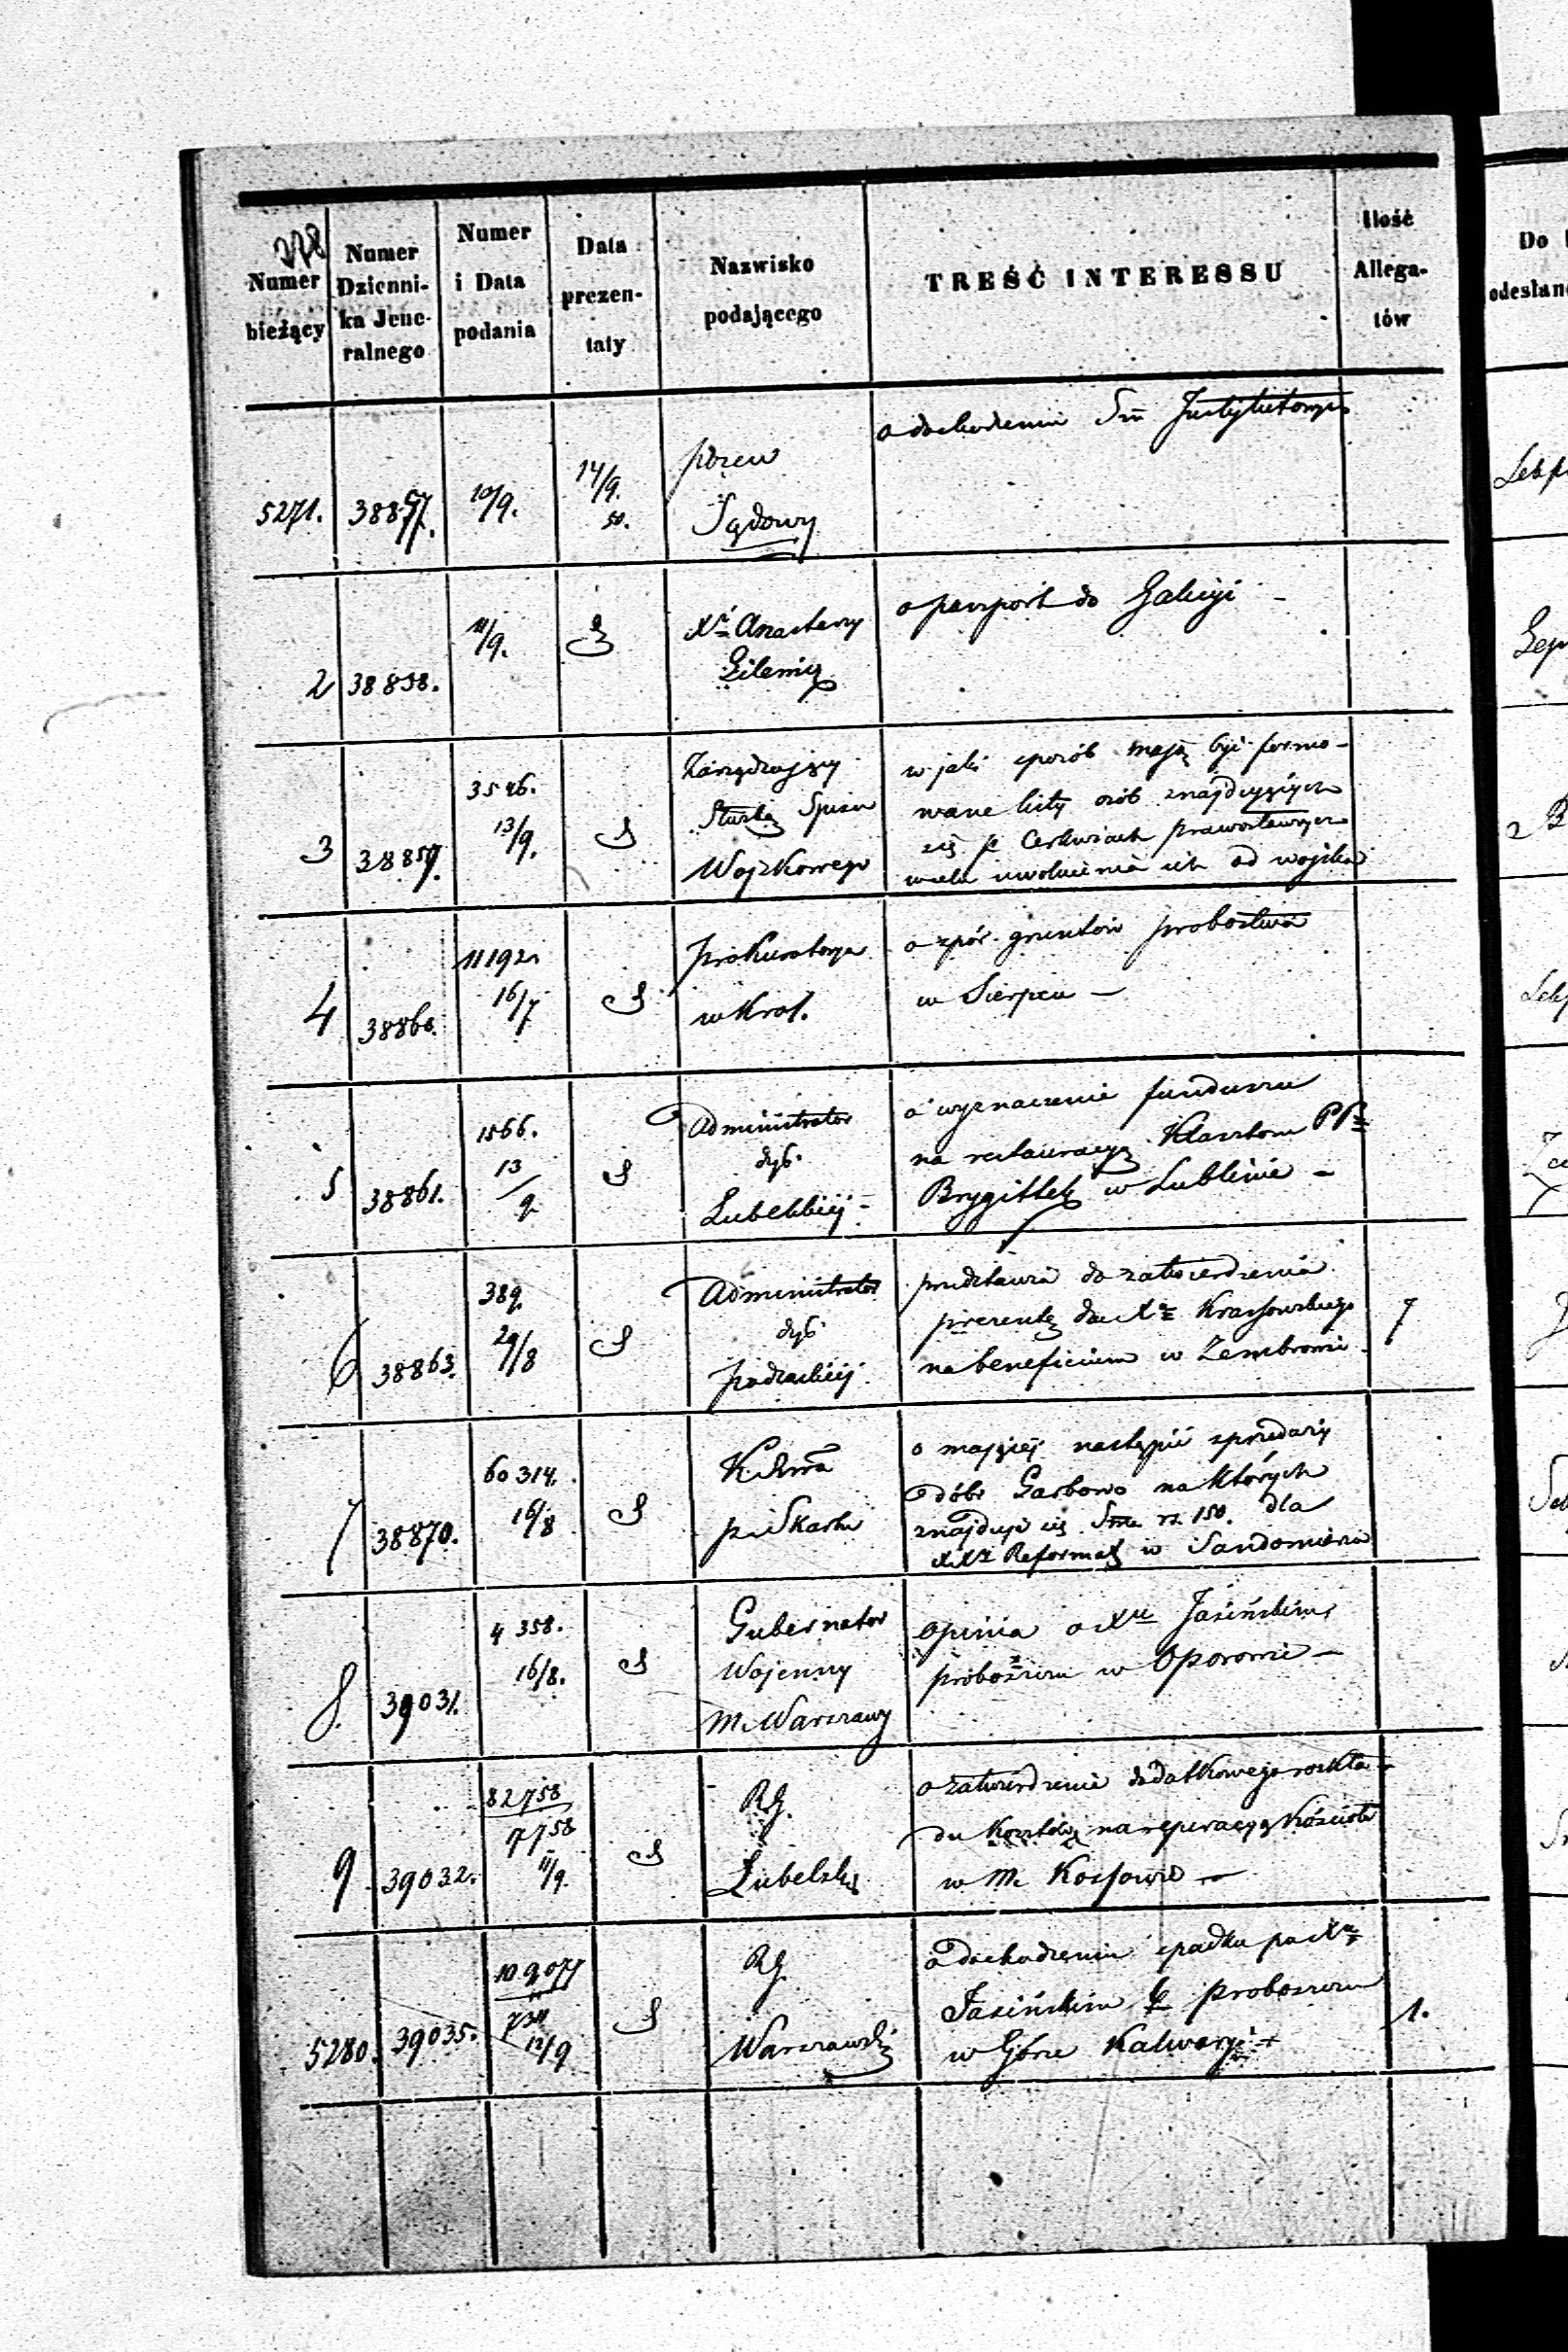 Numer bieżący
Numer Dzienni-ka Jene-ralnego
Numer i Data podania
Data prezen-taty
Nazwisko podającego
TREŚĆ INTERESSU
Ilość Allega-tów
Do
odesłan
5271. 38857. 10/9. 14/9. 50. pozew
Sądowy
o dochodzeniu
2 38858. 11/9.
o paszport do Galicyi -
3 38859. 3546. 13/9. Zarządzający
Służbą Spisu
Wojskowego
w jaki sposób mają być formo-
wane listy osób znajdujących
się p Cerkwiach prawosławnych
w celu uwolnienia ich od wojska
4 38860. 11192. 16/7 Prokuratorya
w Król.
o spór gruntów probostwa
w Sierpcu -
5 38861. 1566. 13/9 Administrator
dyć.
Lubelskiej -
o wyznaczenie funduszu
na restauracyą Klasztoru PP
Brygittek w Lublinie -
6 38863. 389. 29/8 Administrator
dyć
podlaskiej
przedstawia do zatwierdzenia
prezentę dla Xa
na beneficium w
7 38870. 60314. 16/8
o mającej nastąpić sprzedaży
dóbr Garbowo na których
znajduje się rs. 150. dla
XXy Reformat w Sandomierzu
8. 39031. 4358. 16/8. Gubernator
Wojenny
M. Warszawy
opinia o Xu Jasińskim
proboszczu w Oporowie -
9 39032. 82758
7758
11/9. RG.
Lubelski
o zatwierdzenie dodatkowego rozkła-
du kosztów na reperacyą kościoła
w M. Kossowie -
5280. 39035. 109077
731
12/9 RG.
Warszawski
o dochodzeniu spadku po Xu
Jasińskim proboszczu
w Górze Kalwaryi
1.